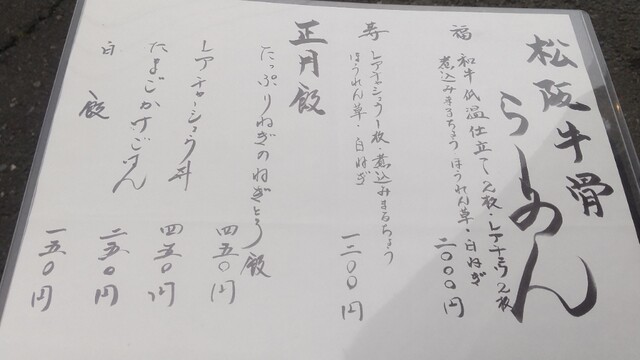 松阪牛骨
らーめん
福 和牛低温仕立て2枚・レアチャーシュー2枚
煮込みまるちょう ほうれん草・白ねぎ 二〇〇〇円
寿 レアチャーシュウ1枚・煮込みまるちょう
ほうれん草・白ねぎ 一三〇〇円
正月飯
たっぷりねぎのねぎとろ飯 四五〇円
レアチャーシュウ丼 四五〇円
たまごかけごはん 二五〇円
白飯 一五〇円